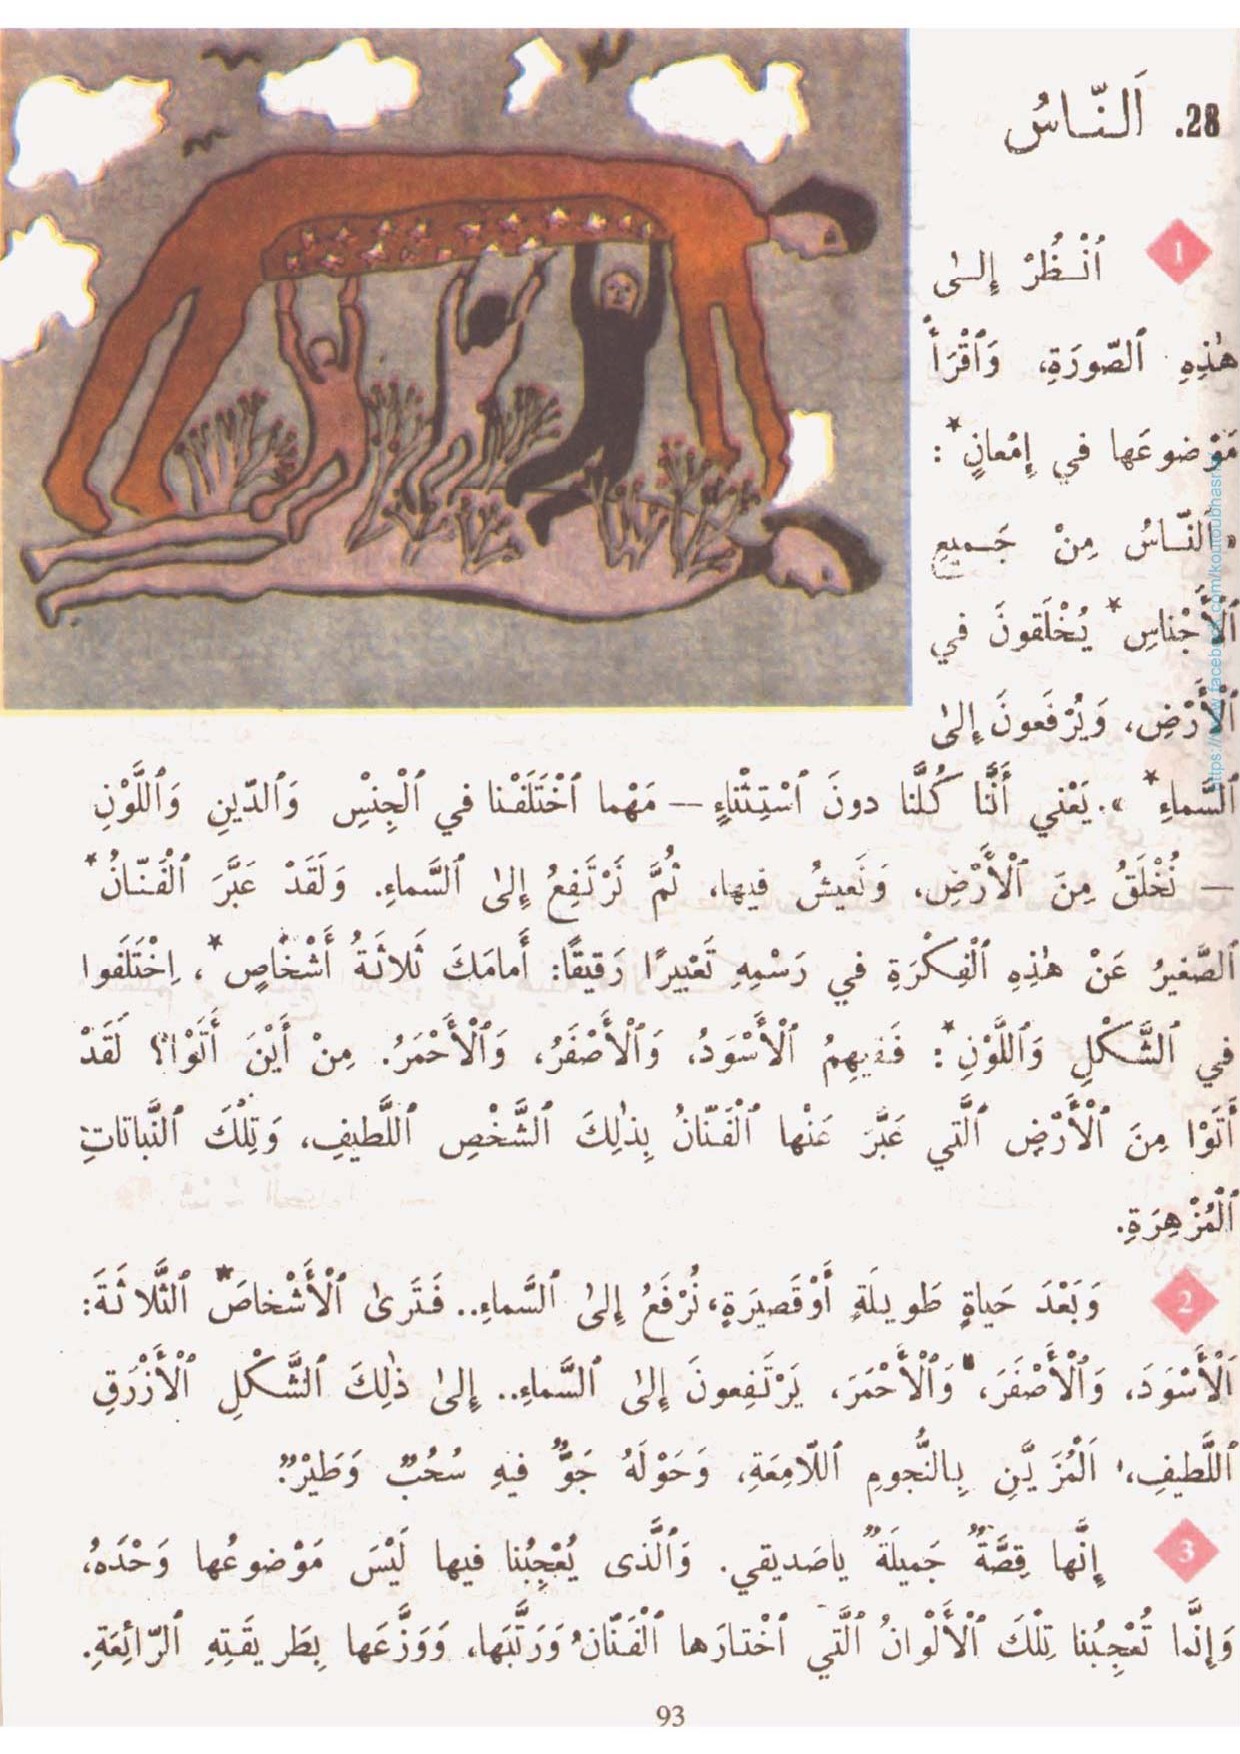 28. اَلنّاسُ
1 اُنْظُرْ إِلىٰ
هٰذِهِ ٱلصّورَةِ، وَٱقْرَأْ
مَوْضوعَها في إِمْعانٍ* :
« اَلنّاسُ مِنْ جَميعِ
ٱلْأَجْناسِ* يُخْلَقونَ في
ٱلْأَرْضِ، وَيُرْفَعونَ إِلىٰ
ٱلسَّماءِ* ». يَعْني أَنَّنا كُلَّنا دونَ ٱسْتِثْناءٍ — مَهْما ٱخْتَلَفْنا في ٱلْجِنْسِ وَٱلدّينِ وَٱللَّوْنِ
— نُخْلَقُ مِنَ ٱلْأَرْضِ، وَنَعيشُ فيها، ثُمَّ نَرْتَفِعُ إِلىٰ ٱلسَّماءِ. وَلَقَدْ عَبَّرَ ٱلْفَنّانُ*
ٱلصَّغيرُ عَنْ هٰذِهِ ٱلْفِكْرَةِ في رَسْمِهِ تَعْبيرًا رَقيقًا: أَمامَكَ ثَلاثَةُ أَشْخاصٍ*، اِخْتَلَفوا
في ٱلشَّكْلِ وَٱللَّوْنِ* : فَفيهِمُ ٱلْأَسْوَدُ، وَٱلْأَصْفَرُ، وَٱلْأَحْمَرُ. مِنْ أَيْنَ أَتَوْا؟ لَقَدْ
أَتَوْا مِنَ ٱلْأَرْضِ ٱلَّتي عَبَّرَ عَنْها ٱلْفَنّانُ بِذٰلِكَ ٱلشَّخْصِ ٱللَّطيفِ، وَتِلْكَ ٱلنَّباتاتِ
ٱلْمُزْهِرَةِ.
2 وَبَعْدَ حَياةٍ طَويلَةٍ أَوْ قَصيرَةٍ، نُرْفَعُ إِلىٰ ٱلسَّماءِ.. فَتَرىٰ ٱلْأَشْخاصَ* ٱلثَّلاثَةَ:
اَلْأَسْوَدَ، وَٱلْأَصْفَرَ، وَٱلْأَحْمَرَ، يَرْتَفِعونَ إِلىٰ ٱلسَّماءِ.. إِلىٰ ذٰلِكَ ٱلشَّكْلِ ٱلْأَزْرَقِ
ٱللَّطيفِ، اَلْمُزَيَّنِ بِالنُّجومِ ٱللّامِعَةِ، وَحَوْلَهُ جَوٌّ فيهِ سُحُبٌ وَطَيْرٌ.
3 إِنَّها قِصَّةٌ جَميلَةٌ ياصَديقي. وَٱلَّذى يُعْجِبُنا فيها لَيْسَ مَوْضوعُها وَحْدَهُ،
وَإِنَّما تُعْجِبُنا تِلْكَ ٱلْأَلْوانُ ٱلَّتي ٱخْتارَها ٱلْفَنّانُ وَرَتَّبَها، وَوَزَّعَها بِطَريقَتِهِ ٱلرّائِعَةِ.
93